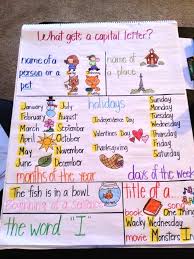 What gets a capital letter?
name of a person or a pet
name of a place
January
February
March
April
May
June
July
August
September
October
November
December
months of the year
holidays
Independence Day
Valentines Day
Thanksgiving
Sunday
Monday
Tuesday
Wednesday
Thursday
Friday
Saturday
days of the week
The fish is in a bowl
beginning of a sentence
the word "I"
title of a
book
song
movie
One Thing
Wacky Wednesday
Monsters I